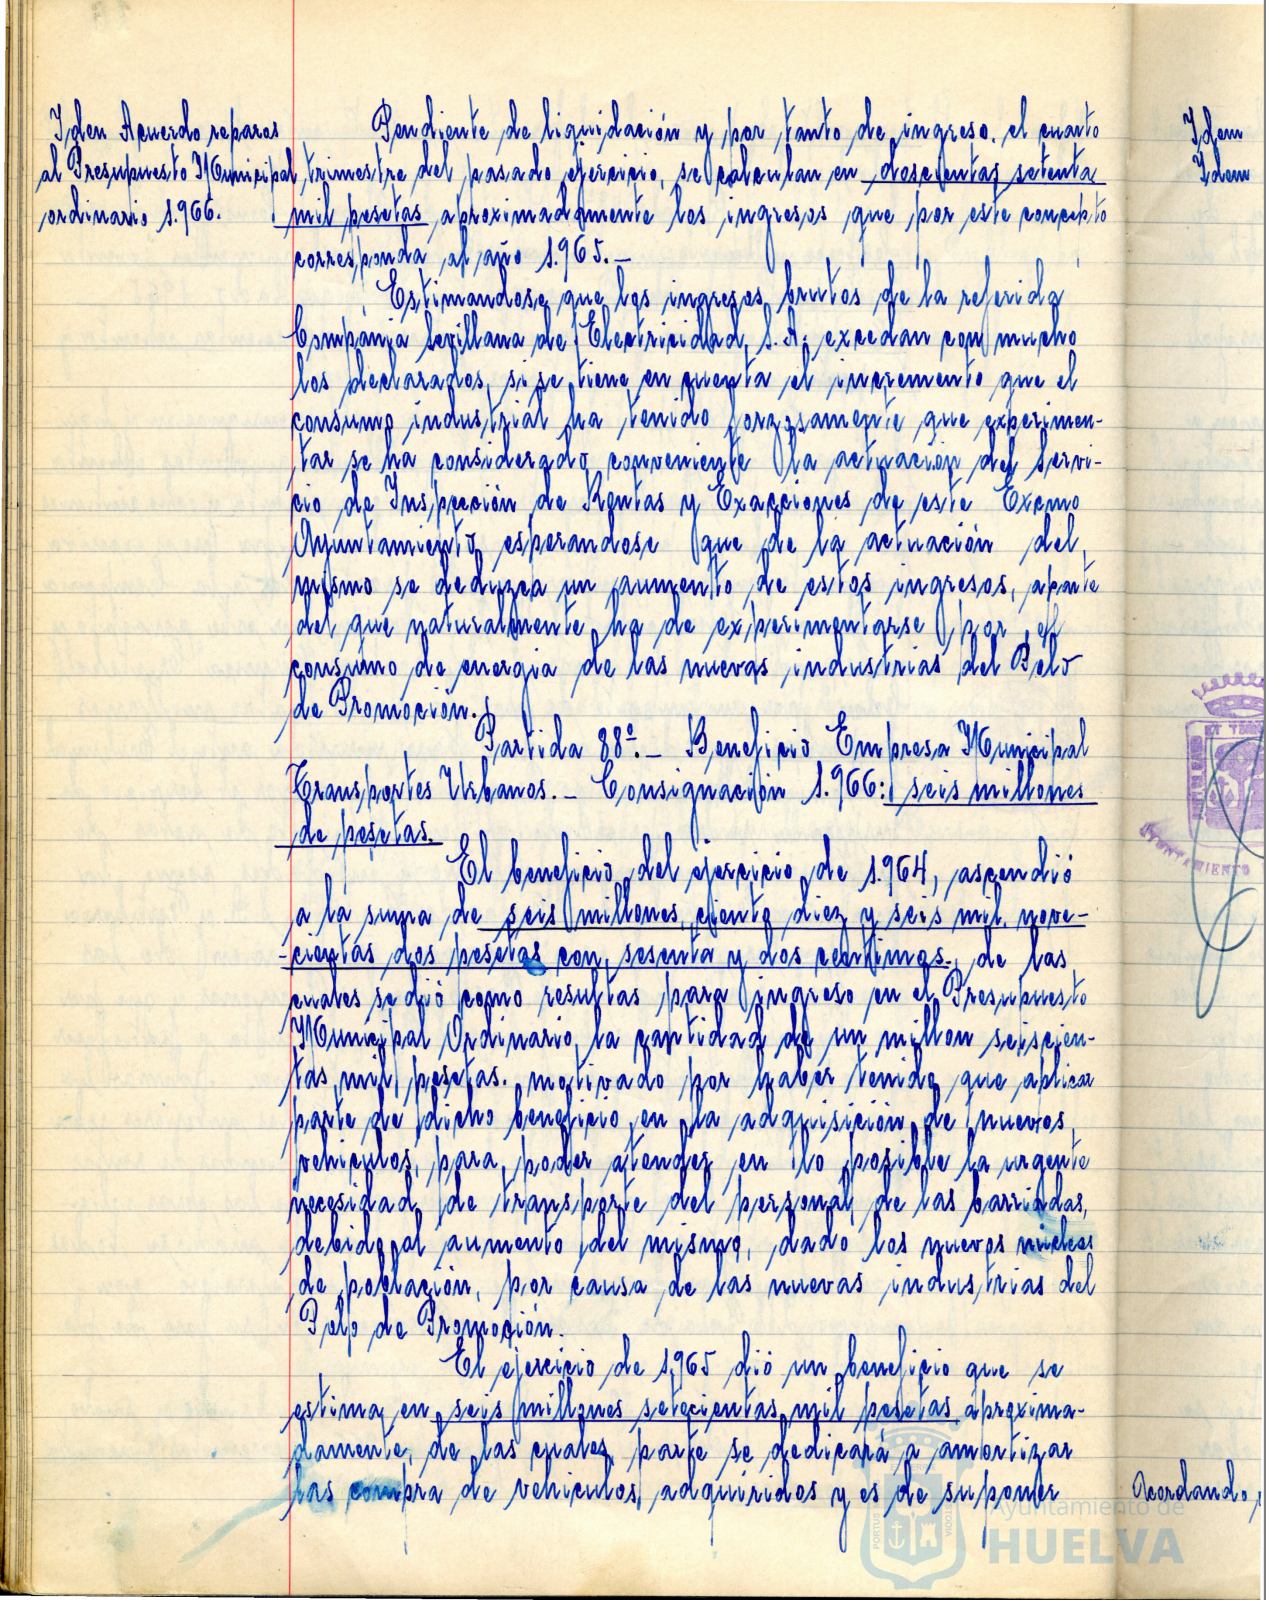 Iden Acuerdo reparos
al Presupuesto Municipal
ordinario 1.966.
Pendiente de liquidación y por tanto de ingreso, el cuarto
trimestre del pasado ejercicio, se calculan en doscientas setenta
mil pesetas aproximadamente los ingresos que por este concepto
corresponda al año 1.965.-
Estimandose que los ingresos brutos de la referida
Compañia Sevillana de Electricidad, S.A. excedan con mucho
los declarados, si se tiene en cuenta el incremento que el
consumo industrial ha tenido forzosamente que experimen-
tar se ha considerado conveniente la actuación del Servi-
cio de Inspección de Rentas y Exacciones de este Excmo
Ayuntamiento, esperandose que de la actuación del
mismo se deduzca un aumento de estos ingresos, aparte
del que naturalmente ha de experimentarse por el
consumo de energia de las nuevas industrias del Polo
de Promoción.
Partida 88ª.- Beneficio Empresa Municipal
Transportes Urbanos.- Consignación 1.966: seis millones
de pesetas.
El beneficio del ejercicio de 1.964, ascendió
a la suma de seis millones, ciento diez y seis mil, nove-
-cientas dos pesetas con sesenta y dos centimos, de las
cuales se dió como resultas para ingreso en el Presupuesto
Municipal Ordinario, la cantidad de un millon seiscien-
tas mil pesetas. motivado por haber tenido que aplicar
parte de dicho beneficio en la adquisición de nuevos
vehiculos, para poder atender en lo posible la urgente
necesidad de transporte del personal de las barriadas,
debido al aumento del mismo, dado los nuevos nucleos
de población, por causa de las nuevas industrias del
Polo de Promoción.
El ejercicio de 1.965 dió un beneficio que se
estima en seis millones setecientas mil pesetas aproxima-
damente, de las cuales parte se dedicará a amortizar
las compra de vehiculos, adquiridos y es de suponer
Idem
Idem
AYUNTAMIENTO
Acordando,
Ayuntamiento de
HUELVA